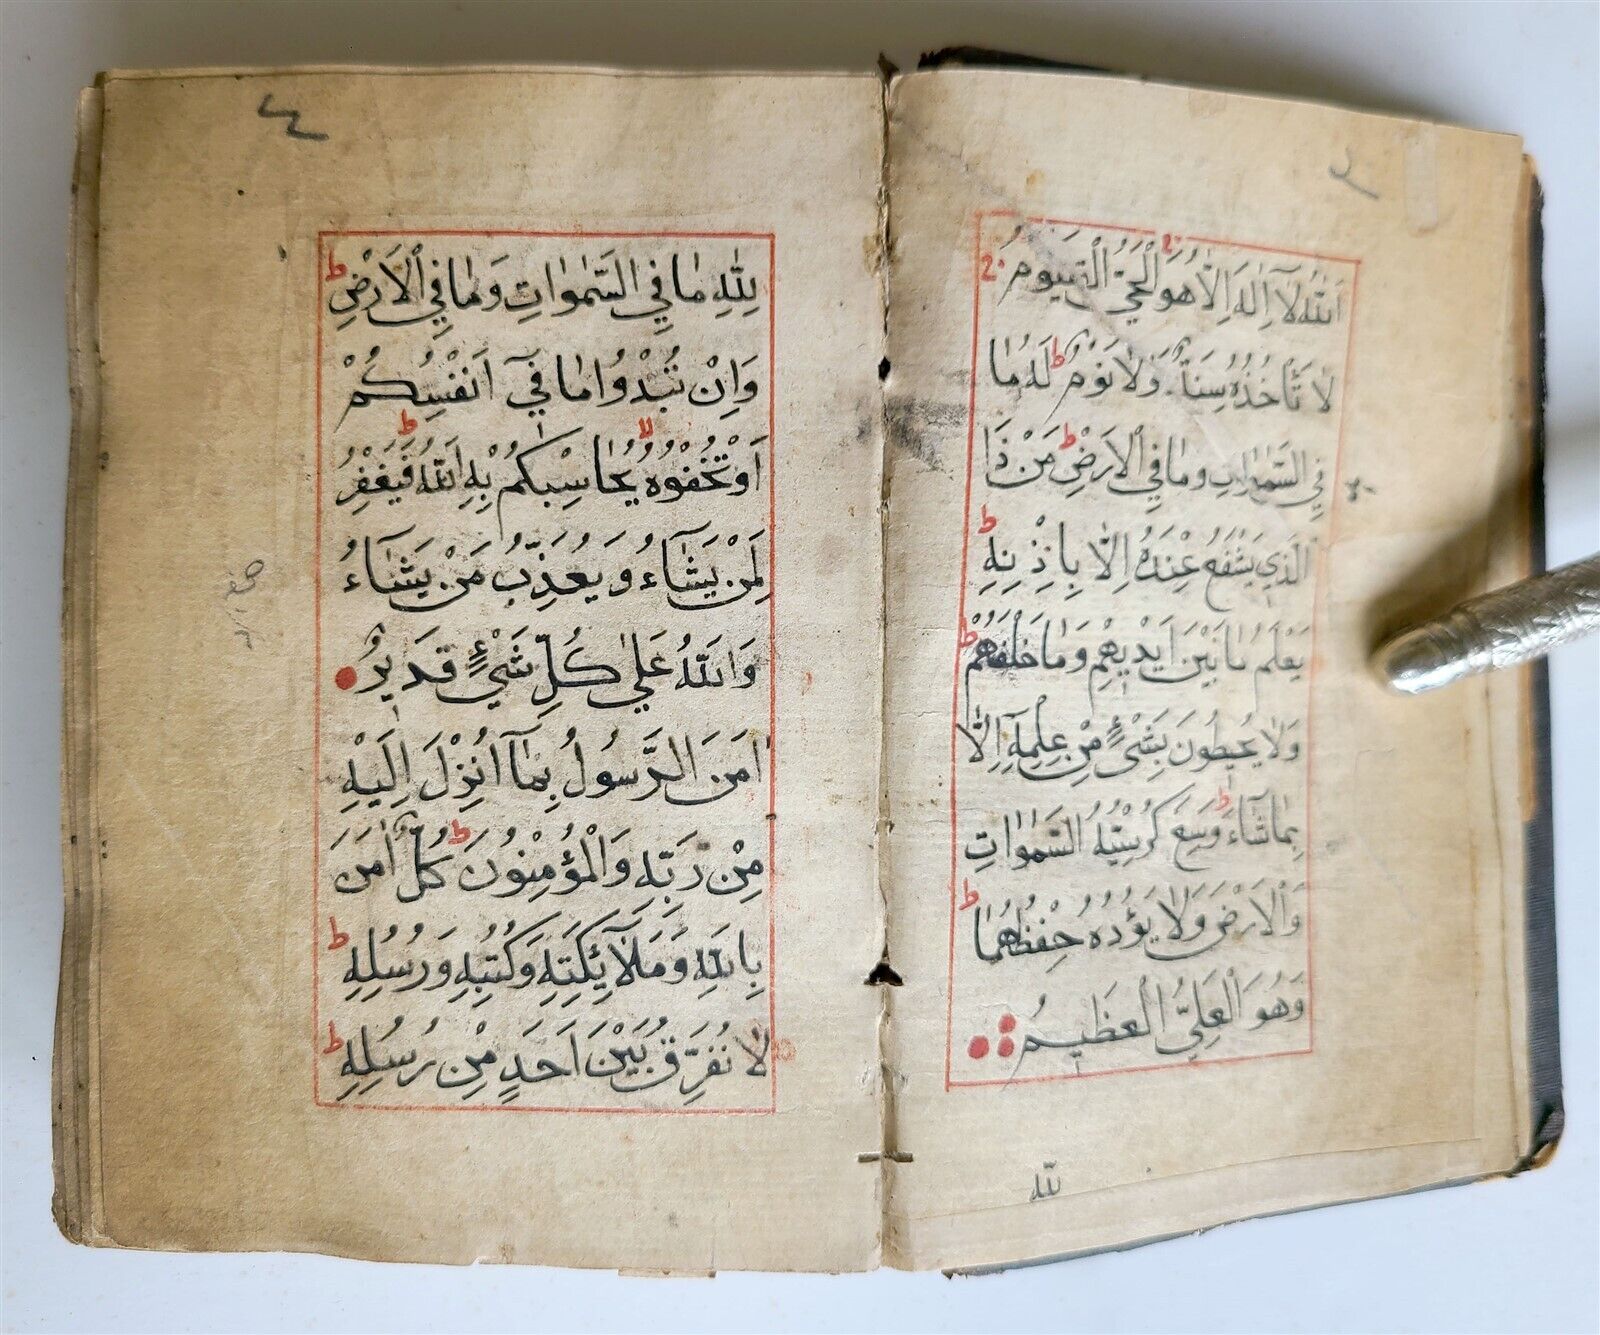 ٣
اَللّٰهُ لَآ اِلٰهَ اِلَّا هُوَ الْحَيُّ الْقَيُّومُ
لَا تَأْخُذُهُ سِنَةٌ وَلَا نَوْمٌ ط لَهُ مَا
فِي السَّمٰوَاتِ وَمَا فِي الْاَرْضِ ط مَنْ ذَا
الَّذِي يَشْفَعُ عِنْدَهُ اِلَّا بِاِذْنِهِ ط
يَعْلَمُ مَا بَيْنَ اَيْدِيهِمْ وَمَا خَلْفَهُمْ ط
وَلَا يُحِيطُونَ بِشَيْءٍ مِنْ عِلْمِهِ اِلَّا
بِمَا شَآءَ ط وَسِعَ كُرْسِيُّهُ السَّمٰوَاتِ
وَالْاَرْضَ وَلَا يَؤُدُهُ حِفْظُهُمَا ط
وَهُوَ الْعَلِيُّ الْعَظِيمُ
لله
٤
لِلّٰهِ مَا فِي السَّمٰوَاتِ وَمَا فِي الْاَرْضِ ط
وَاِنْ تُبْدُوا مَا فِيٓ اَنْفُسِكُمْ
اَوْ تُخْفُوهُ يُحَاسِبْكُمْ بِهِ اللّٰهُ ط فَيَغْفِرُ
لِمَنْ يَشَآءُ وَيُعَذِّبُ مَنْ يَشَآءُ
وَاللّٰهُ عَلٰى كُلِّ شَيْءٍ قَدِيرٌ
اٰمَنَ الرَّسُولُ بِمَآ اُنْزِلَ اِلَيْهِ
مِنْ رَبِّهِ وَالْمُؤْمِنُونَ ط كُلٌّ اٰمَنَ
بِاللّٰهِ وَمَلَآئِكَتِهِ وَكُتُبِهِ وَرُسُلِهِ ط
لَا نُفَرِّقُ بَيْنَ اَحَدٍ مِنْ رُسُلِهِ ط